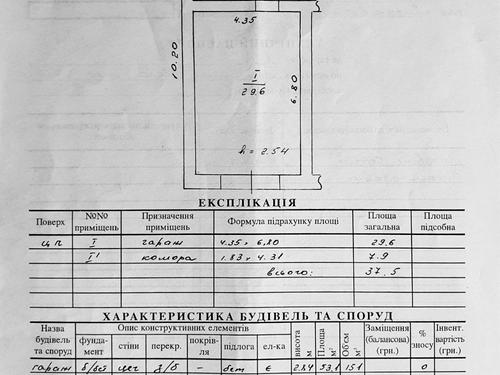 4.35
10.20
I
29.6
6.80
h = 2.54
ЕКСПЛІКАЦІЯ
Поверх №№ приміщень Призначення приміщень Формула підрахунку площі Площа загальна Площа підсобна
цп I гараж 4.35 x 6.80 29.6
I' комора 1.83 x 4.31 7.9
всього: 37.5
ХАРАКТЕРИСТИКА БУДІВЕЛЬ ТА СПОРУД
Назва будівель та споруд Опис конструктивних елементів висота м Площа м² Об'єм м³ Заміщення (балансова) (грн.) % зносу Інвент. вартість (грн.)
фундамент стіни перекр. покрівля підлога ел-ка
гараж б/бл цег з/б – бет є 2.84 53,1 151 0